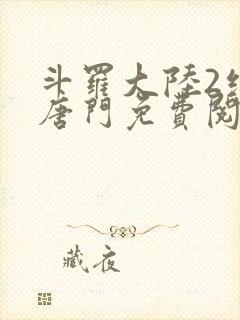 斗羅大陸2
唐門免費閱
藏夜